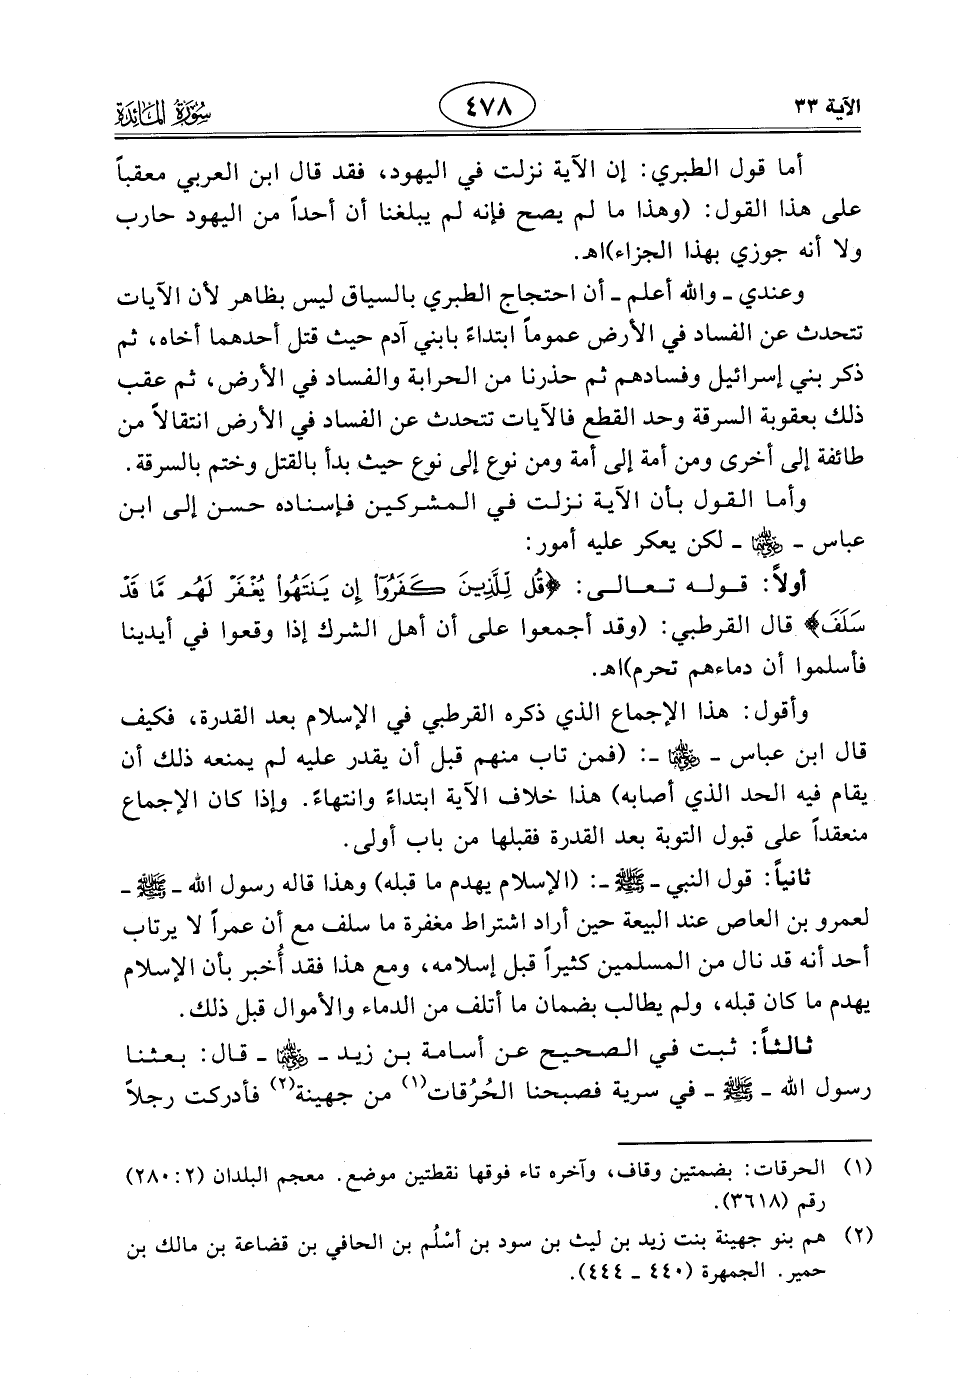 الآية ٣٣
٤٧٨
سورة المائدة
أما قول الطبري: إن الآية نزلت في اليهود، فقد قال ابن العربي معقباً
على هذا القول: (وهذا ما لم يصح فإنه لم يبلغنا أن أحداً من اليهود حارب
ولا أنه جوزي بهذا الجزاء)اهـ.
وعندي ـ والله أعلم ـ أن احتجاج الطبري بالسياق ليس بظاهر لأن الآيات
تتحدث عن الفساد في الأرض عموماً ابتداءً بابني آدم حيث قتل أحدهما أخاه، ثم
ذكر بني إسرائيل وفسادهم ثم حذرنا من الحرابة والفساد في الأرض، ثم عقب
ذلك بعقوبة السرقة وحد القطع فالآيات تتحدث عن الفساد في الأرض انتقالاً من
طائفة إلى أخرى ومن أمة إلى أمة ومن نوع إلى نوع حيث بدأ بالقتل وختم بالسرقة.
وأما القول بأن الآية نزلت في المشركين فإسناده حسن إلى ابن
عباس ـ رضي الله عنهما ـ لكن يعكر عليه أمور:
أولاً: قوله تعالى: ﴿قُل لِّلَّذِينَ كَفَرُوٓاْ إِن يَنتَهُواْ يُغْفَرْ لَهُم مَّا قَدْ
سَلَفَ﴾ قال القرطبي: (وقد أجمعوا على أن أهل الشرك إذا وقعوا في أيدينا
فأسلموا أن دماءهم تحرم)اهـ.
وأقول: هذا الإجماع الذي ذكره القرطبي في الإسلام بعد القدرة، فكيف
قال ابن عباس ـ رضي الله عنهما ـ: (فمن تاب منهم قبل أن يقدر عليه لم يمنعه ذلك أن
يقام فيه الحد الذي أصابه) هذا خلاف الآية ابتداءً وانتهاءً. وإذا كان الإجماع
منعقداً على قبول التوبة بعد القدرة فقبلها من باب أولى.
ثانياً: قول النبي ـ ﷺ ـ: (الإسلام يهدم ما قبله) وهذا قاله رسول الله ـ ﷺ ـ
لعمرو بن العاص عند البيعة حين أراد اشتراط مغفرة ما سلف مع أن عمراً لا يرتاب
أحد أنه قد نال من المسلمين كثيراً قبل إسلامه، ومع هذا فقد أُخبر بأن الإسلام
يهدم ما كان قبله، ولم يطالب بضمان ما أتلف من الدماء والأموال قبل ذلك.
ثالثاً: ثبت في الصحيح عن أسامة بن زيد ـ رضي الله عنهما ـ قال: بعثنا
رسول الله ـ ﷺ ـ في سرية فصبحنا الحُرُقات(١) من جهينة(٢) فأدركت رجلاً
(١) الحرقات: بضمتين وقاف، وآخره تاء فوقها نقطتين موضع. معجم البلدان (٢: ٢٨٠)
رقم (٣٦١٨).
(٢) هم بنو جهينة بنت زيد بن ليث بن سود بن أسْلُم بن الحافي بن قضاعة بن مالك بن
حمير. الجمهرة (٤٤٠ ـ ٤٤٤).